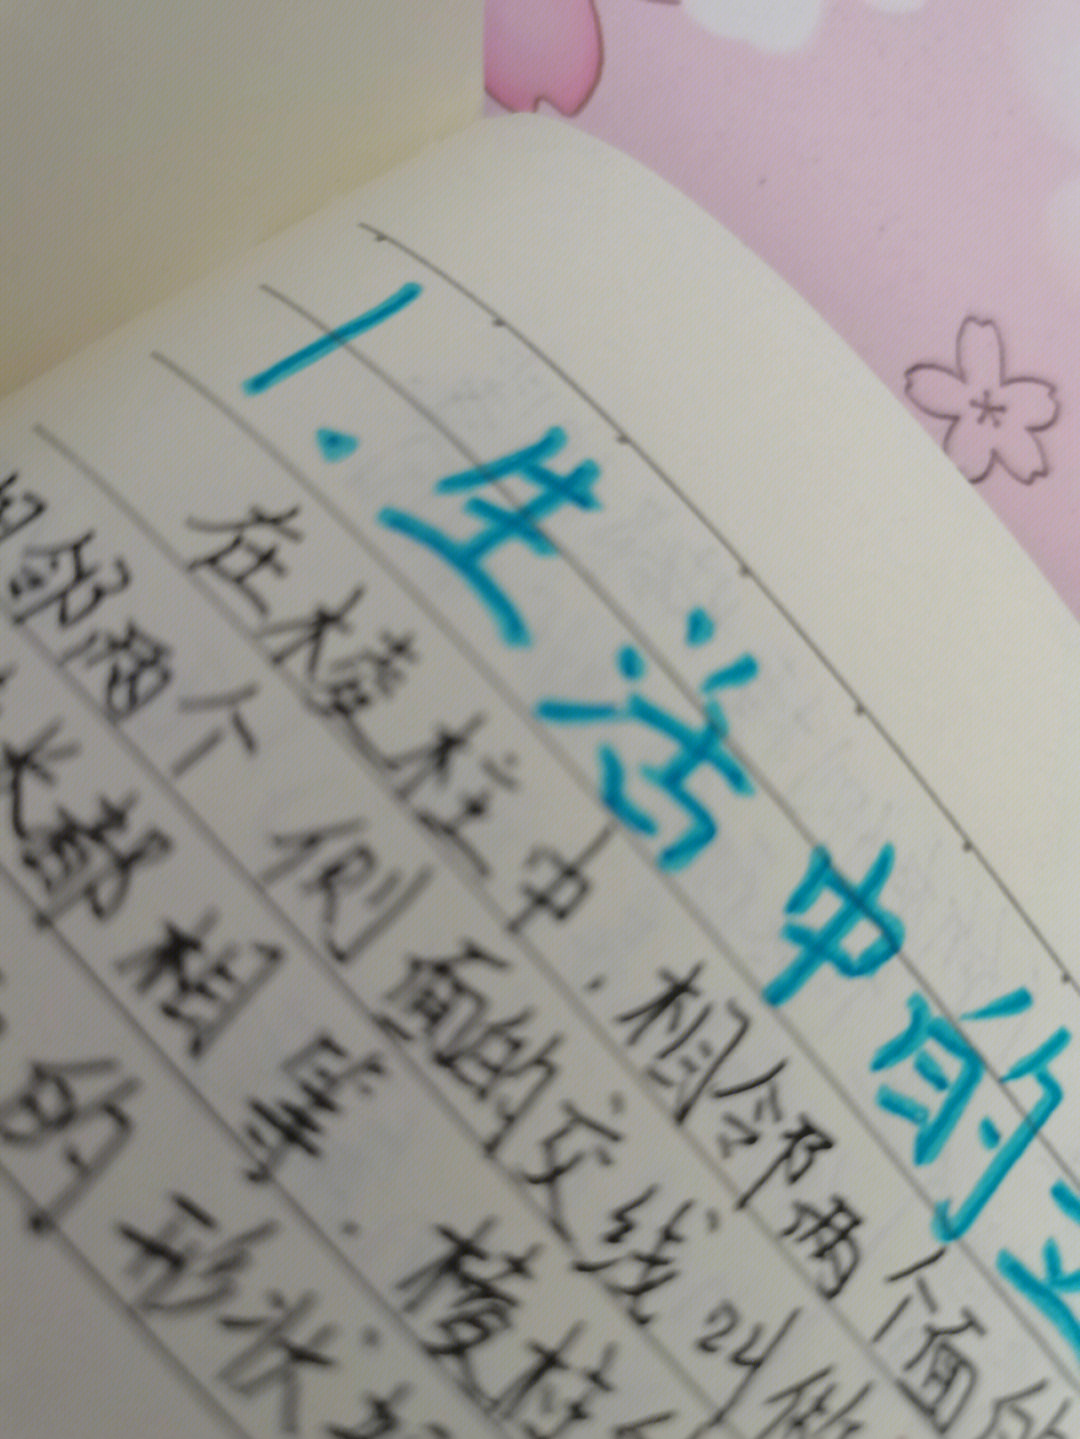 1.生活中的立
在棱柱中,相邻两个面的
相邻两个侧面的交线叫做
长都相等.棱柱的
的形状都